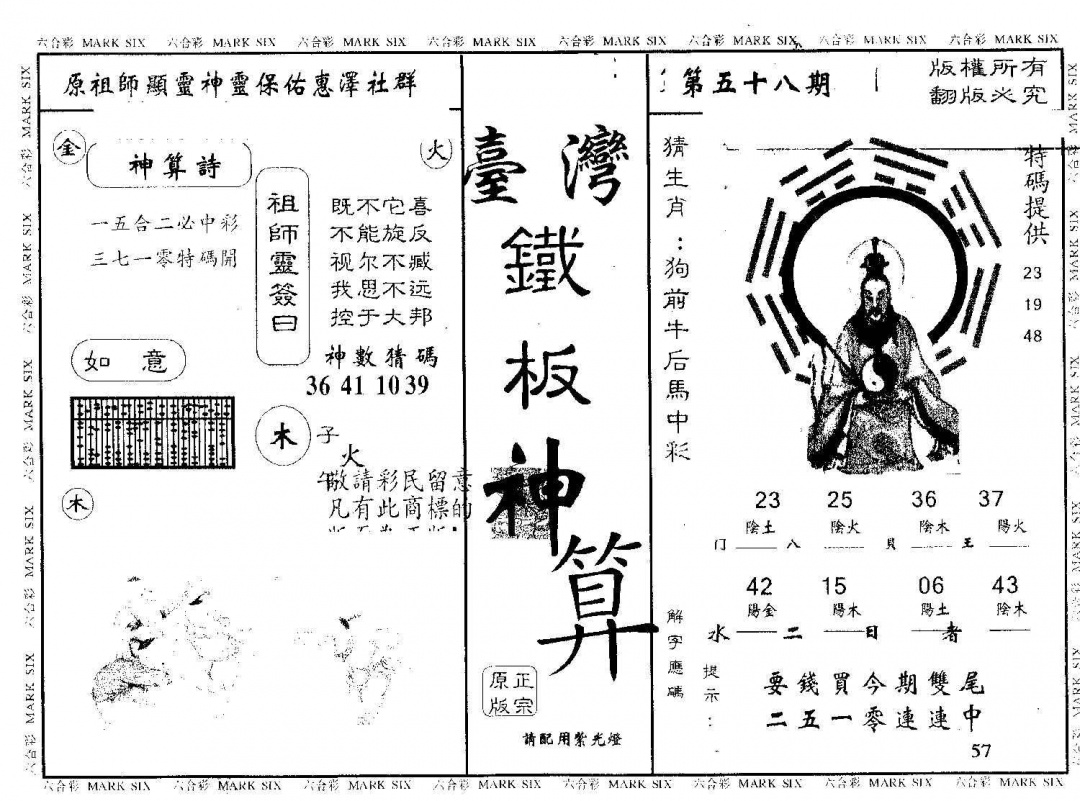 六合彩 MARK SIX 六合彩 MARK SIX 六合彩 MARK SIX 六合彩 MARK SIX 六合彩 MARK SIX 六合彩 MARK SIX 六合彩 MARK SIX 六合彩 MARK SIX
原祖師顯靈神靈保佑惠澤社群
金
火
神算詩
一五合二必中彩
三七一零特碼開
祖師靈簽曰
既不它喜
不能旋反
视尔不臧
我思不远
控于大邦
神數猜碼
36 41 10 39
如意
木
木
子
火
午
敬請彩民留意
凡有此商標的
臺灣
鐵
板
神
算
正宗
原版
請配用紫光燈
第五十八期
版權所有
翻版必究
猜生肖：狗前牛后馬中彩
特碼提供
23
19
48
23 25 36 37
陰土 陰火 陰木 陽火
门 八 貝 王
42 15 06 43
陽金 陽木 陽土 陰木
水 二 日 者
解字應碼
提示：
要錢買今期雙尾
二五一零連連中
57
六合彩 MARK SIX 六合彩 MARK SIX 六合彩 MARK SIX 六合彩 MARK SIX 六合彩 MARK SIX 六合彩 MARK SIX 六合彩 MARK SIX 六合彩 MARK SIX